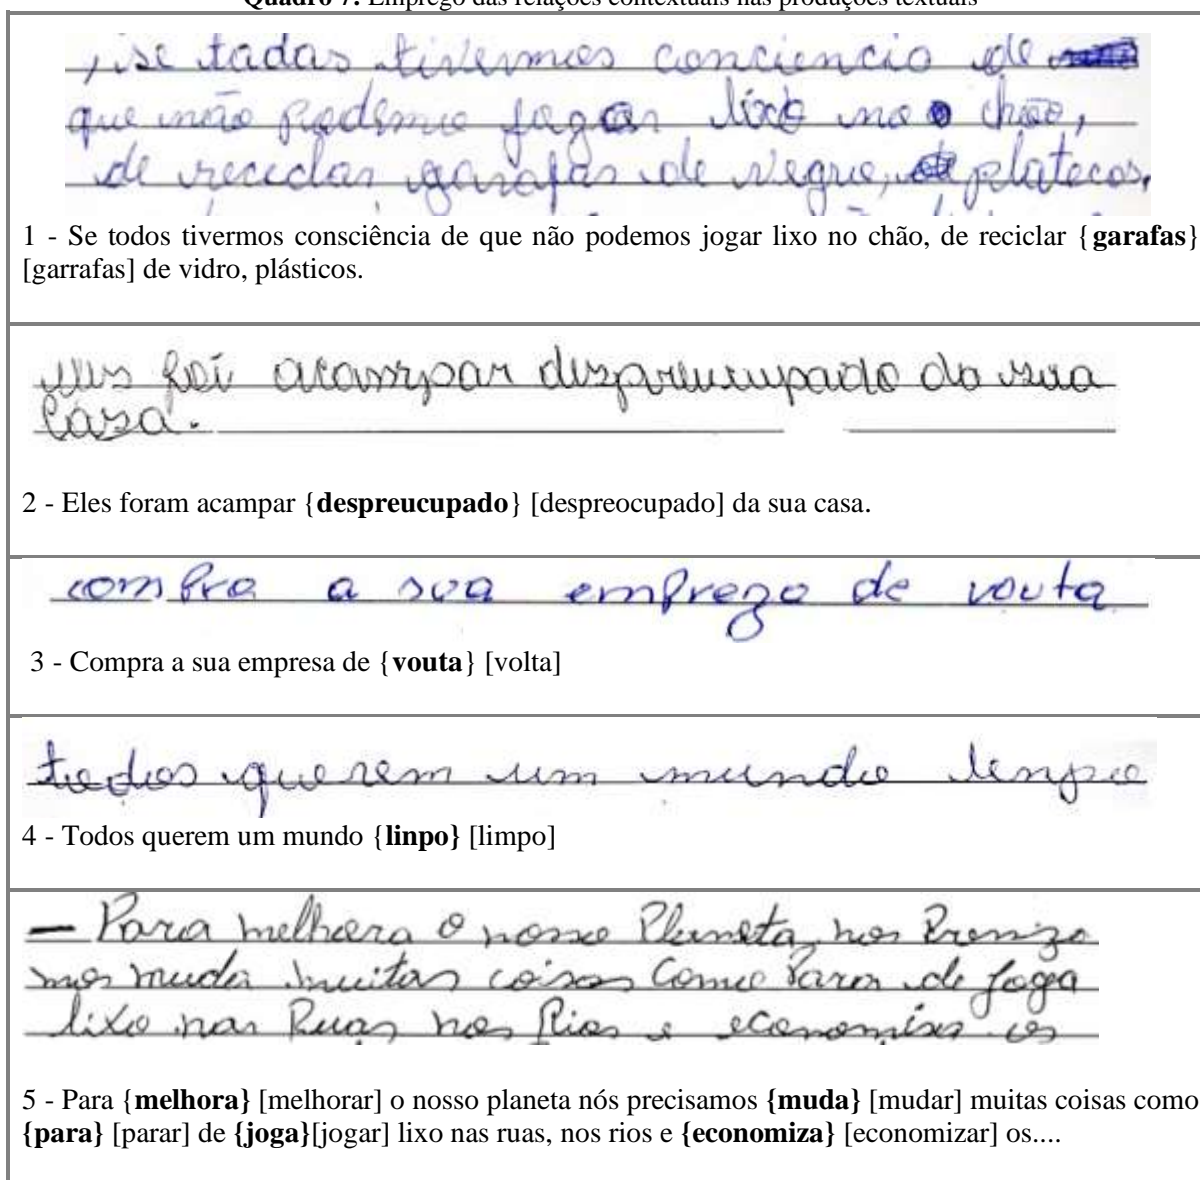 Quadro 7: Emprego das relações contextuais nas produções textuais
, se todos tivermos conciencia de
que não podemo jogar lixo no chão,
de reciclar garafas de vidro, platecos,
foi acampar despreucupado da sua
casa.
1 - Se todos tivermos consciência de que não podemos jogar lixo no chão, de reciclar {garafas}
[garrafas] de vidro, plásticos.
2 - Eles foram acampar {despreucupado} [despreocupado] da sua casa.
compra a sua empreza de vouta
3 - Compra a sua empresa de {vouta} [volta]
todos querem um mundo linpo
4 - Todos querem um mundo {linpo} [limpo]
- Para melhora o nosso Planeta, nos Preniza
mos muda muitas coisas Como Para de joga
lixo nas Ruas nos Rios e economiza os
5 - Para {melhora} [melhorar] o nosso planeta nós precisamos {muda} [mudar] muitas coisas como
{para} [parar] de {joga}[jogar] lixo nas ruas, nos rios e {economiza} [economizar] os....